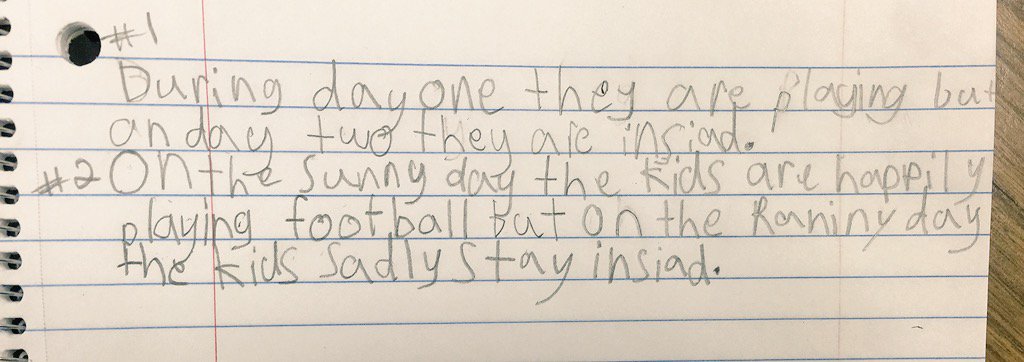 #1
During day one they are playing but
on day two they are insiad.
#2 On the sunny day the kids are happily
playing football but on the Raniny day
the kids sadly stay insiad.